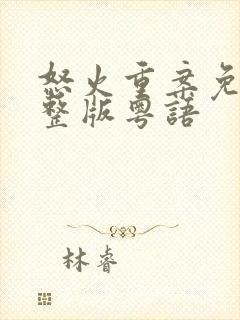 怒火重案免
整版粤語
林睿